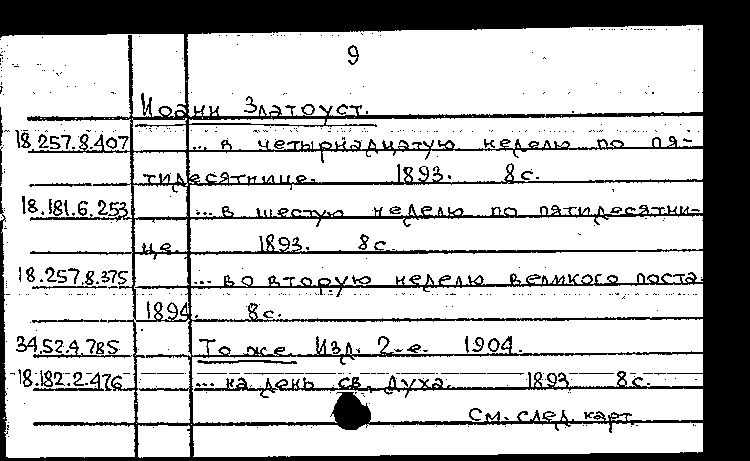 9
Иоанн Златоуст.
18.257.8.407 ... в четырнадцатую неделю по пя-
тидесятнице. 1893. 8 с.
18.181.6.253 ... в шестую неделю по пятидесятни-
це. 1893. 8 с.
18.257.8.375 ... во вторую неделю великого поста.
1894. 8 с.
34.52.4.785 То же. Изд. 2-е. 1904.
18.182.2.476 ... на день св. духа. 1893 8 с.
См. след. карт.